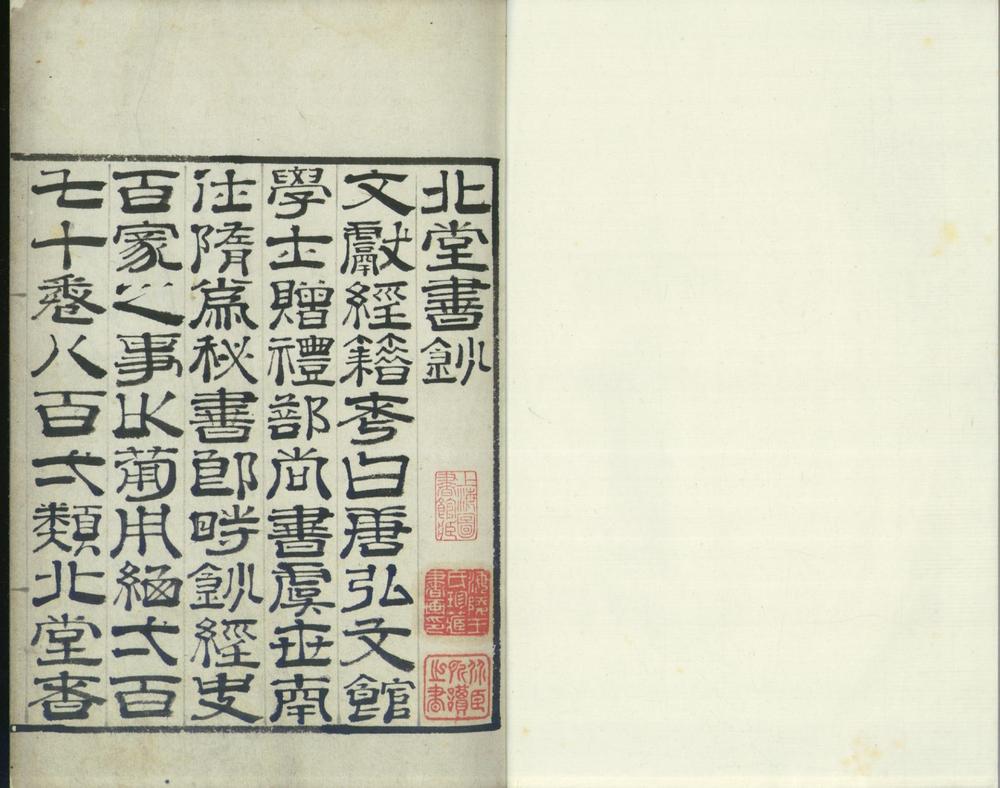 北堂書鈔
文獻經籍考曰唐弘文館
學士贈禮部尚書虞世南
仕隋爲秘書郎時鈔經史
百家之事以葡用緫弌百
七十卷八百弌類北堂者
上海圖書館藏